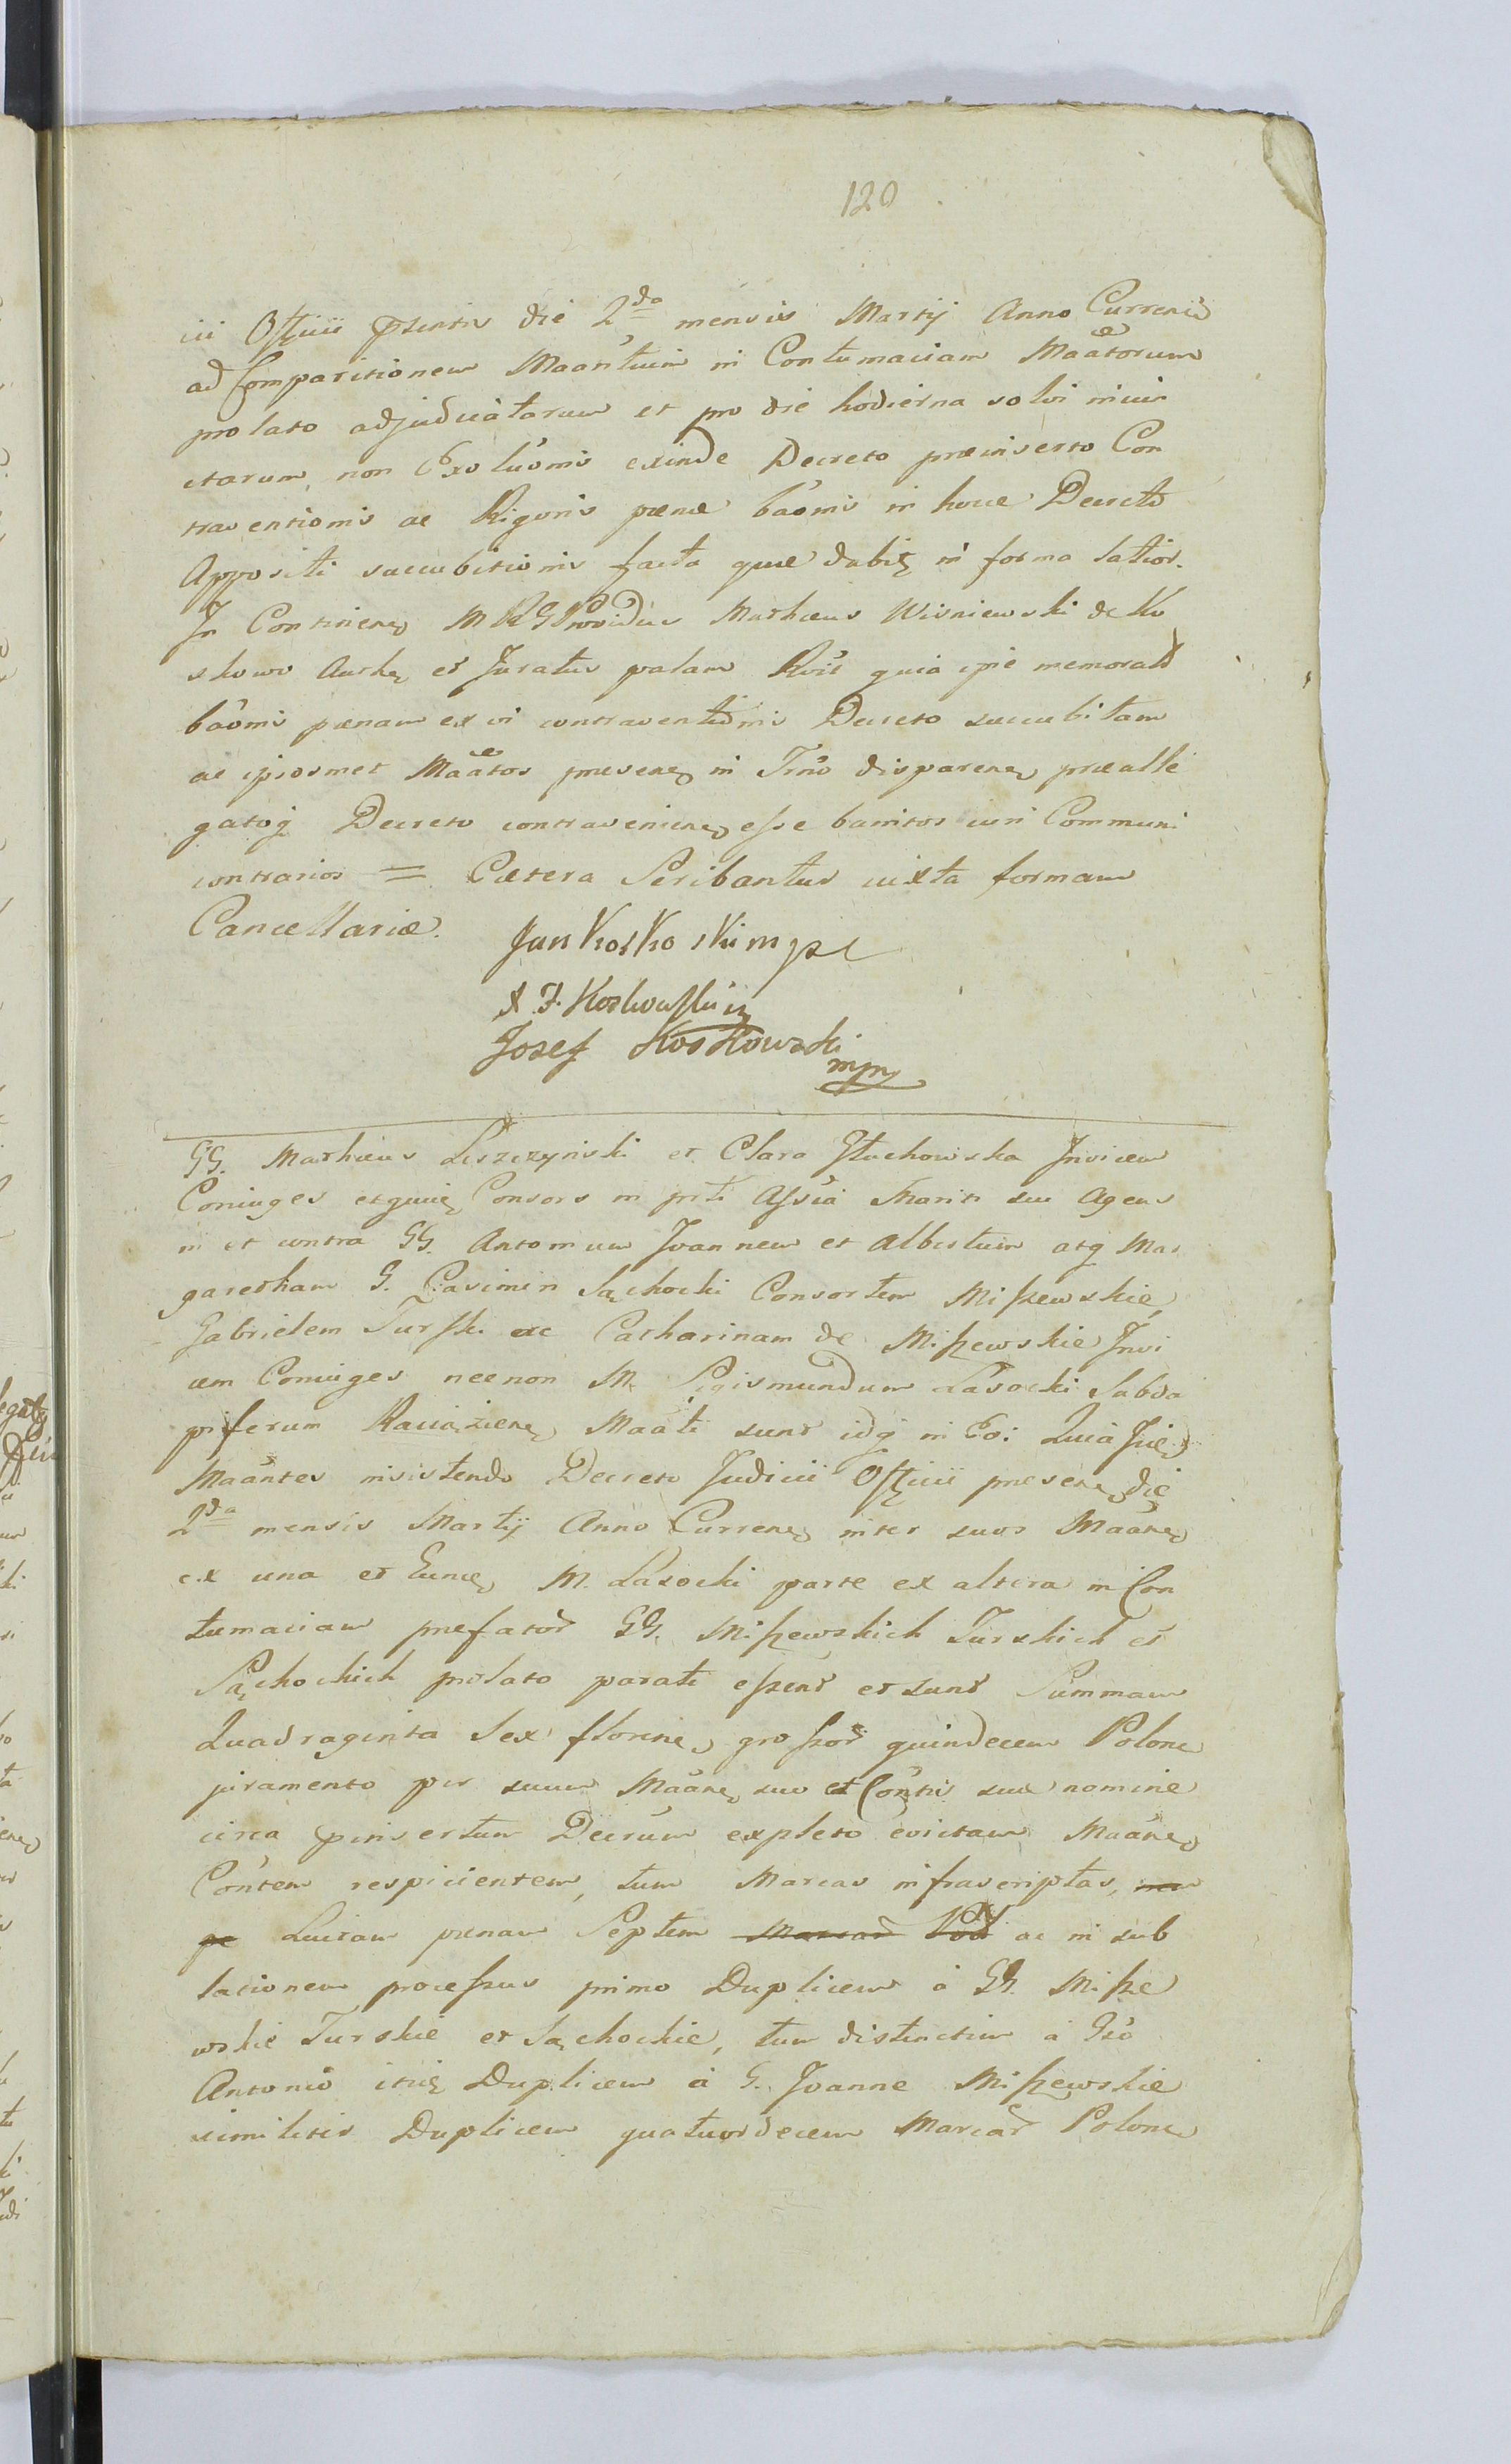 120
iii Offcii pzentis die 2da mensis Martij Anno Curren
ad Comparitionem Maantium in Contumaciam Maatorum
prolato adjudicatarum et pro die hodierna solvi iniun
ctarum, non Exolu͠onis exinde Decreto præinserto Con
traventionis ac Rigoris pænæ ba͠onis in hocce Decreto
Appositi succubitionis facta quæ dabit in forma latior.
In Continen MRG Providus Mathæus Wisniewski de Ko
skowo Auth et Juratus palam Rvit quia ipse memorat
ba͠onis pænam ex vi contraventionis Decreto succubitam
ac ipsosmet Maatos presen in Tno disparen præalle
gatoq Decreto contravenien esse banitos iuri Communi
contrarios = Cætera Scribantur iuxta formam
Cancellariæ. Jan Koskoski mpr
A. F. Koskowski
Josef Koskowski
mpp
GG. Mathæus Leszczynski et Clara Głuchowska Invicem
Coniuges et quid Consors in prti Assia Mariti sui Agens
in et contra GG. Antonium Joannem et Albertum atq Mar
garetham G. Casimiri Sąchocki Consortem Miszewskie,
Gabrielem Turski ac Catharinam de Miszewskie Invi
cem Coniuges necnon M. Sigismundum Lasocki Subda
piferum Raciązien Maati sunt idq in Eo: Quia Ijd
Maantes insistendo Decreto Judicii Offcii presen die
2da mensis Martij Anno Curren inter suos Maan
ex una et Eund M. Lasocki parte ex altera in Con
tumaciam prefator GG. Miszewskich Turskich et
Sąchockich prolato parati essent et sunt Summam
Quadraginta Sex floren, grossor quindecem Polon
juramento per suum Maan suo et Contis suæ nomine
circa pinsertum Decrum expleto evictam Maan
Contem respicientem, tum Marcas infrascriptas,
Luitam pænam Septem Marcar Pol ac in sub
lationem processus primo Duplicem á GG. Misze
wskie Turskie et Sąchockie, tum distinctim á Gso
Antonio itid Duplicem á G. Joanne Miszewskie
similiter Duplicem quatuordecem Marcar Polon